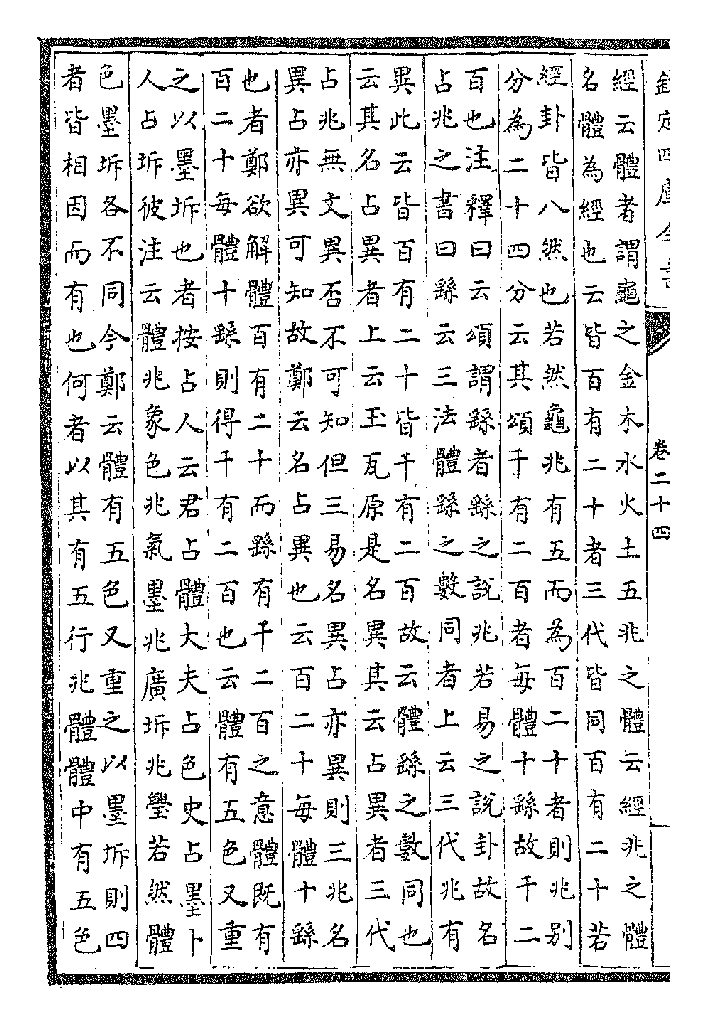 欽定四庫全書
卷二十四
經云體者謂龜之金木水火土五兆之體云經兆之體
名體為經也云皆百有二十者三代皆同百有二十若
經卦皆八然也若然龜兆有五而為百二十者則兆别
分為二十四分云其頌千有二百者每體十繇故千二
百也注釋曰云頌謂繇者繇之說兆若易之說卦故名
占兆之書曰繇云三法體繇之數同者上云三代兆有
異此云皆百有二十皆千有二百故云體繇之數同也
云其名占異者上云玉瓦原是名異其云占異者三代
占兆無文異否不可知但三易名異占亦異則三兆名
異占亦異可知故鄭云名占異也云百二十每體十繇
也者鄭欲解體百有二十而繇有千二百之意體既有
百二十每體十繇則得千有二百也云體有五色又重
之以墨坼也者按占人云君占體大夫占色史占墨卜
人占坼彼注云體兆象色兆氣墨兆廣坼兆璺若然體
色墨坼各不同今鄭云體有五色又重之以墨坼則四
者皆相因而有也何者以其有五行兆體體中有五色